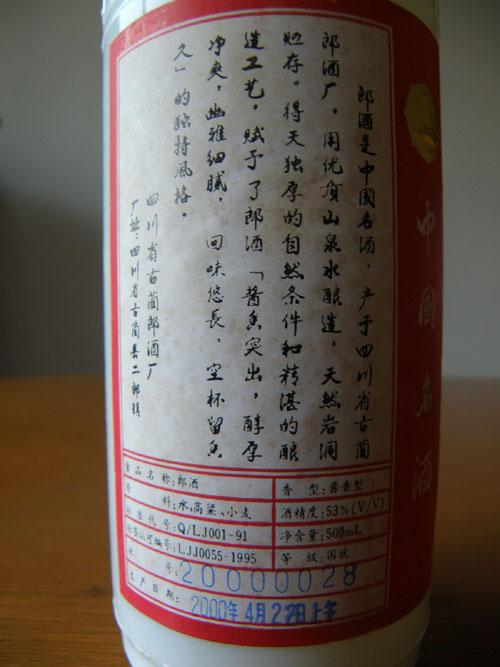 郎酒是中國名酒，产于四川省古蔺
郎酒厂，用优质山泉水酿造，天然岩洞
贮存。得天独厚的自然条件和精湛的酿
造工艺，赋予了郎酒「酱香突出，醇厚
净爽，幽雅细腻，回味悠長，空杯留香
久」的独特風格。
四川省古蔺郎酒厂
厂址：四川省古蔺县二郎镇
食品名称：郎酒
香型：酱香型
料：水、高粱、小麦
酒精度：53%(V/V)
标准代号：Q/LJ001-91
净含量：500mL
标签认可编号：LJJ0055-1995
等级：国优
号：20000028
生产日期：2000年4月22日上午
中國名酒